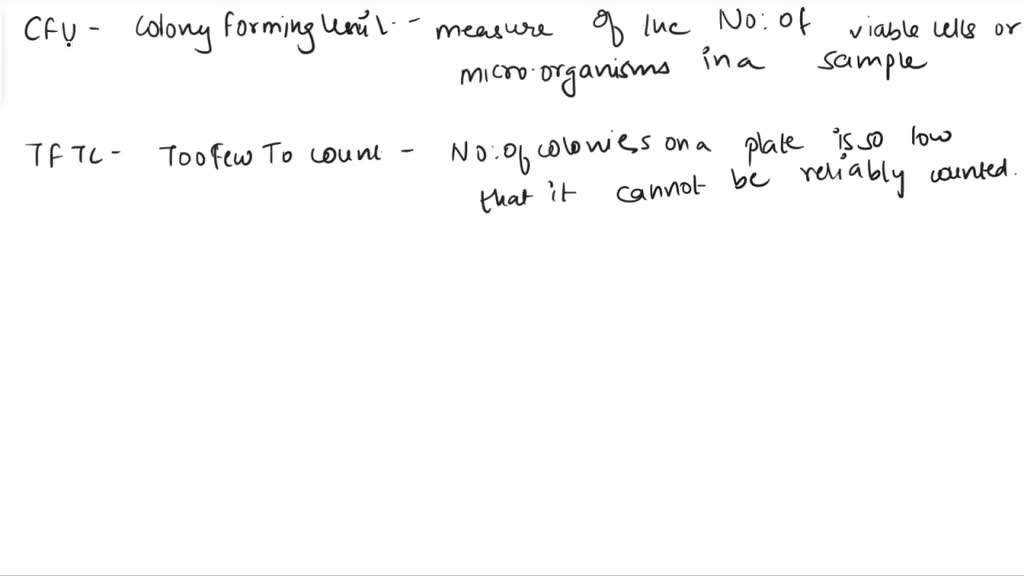 CFU - Colony Forming Unit - measure of the No: of viable cells or
micro-organisms in a sample
TFTC - Too Few To count - No: of colonies on a plate is so low
that it cannot be reliably counted.